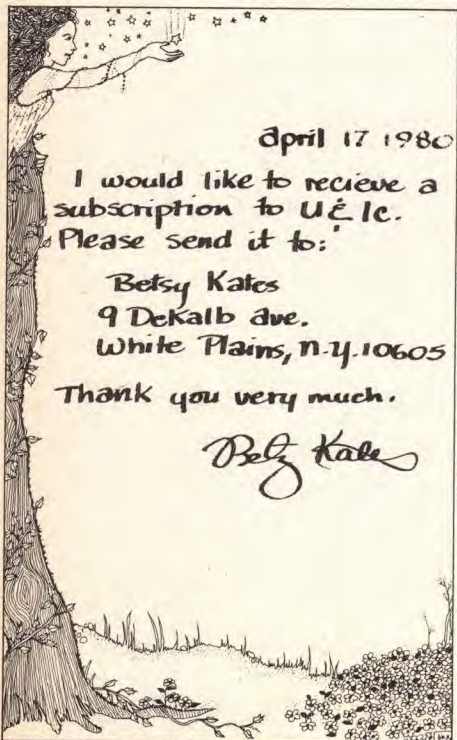 april 17 1980
I would like to recieve a
subscription to U&lc.
Please send it to:
Betsy Kates
9 DeKalb ave.
White Plains, n.y. 10605
Thank you very much.
Betsy Kates